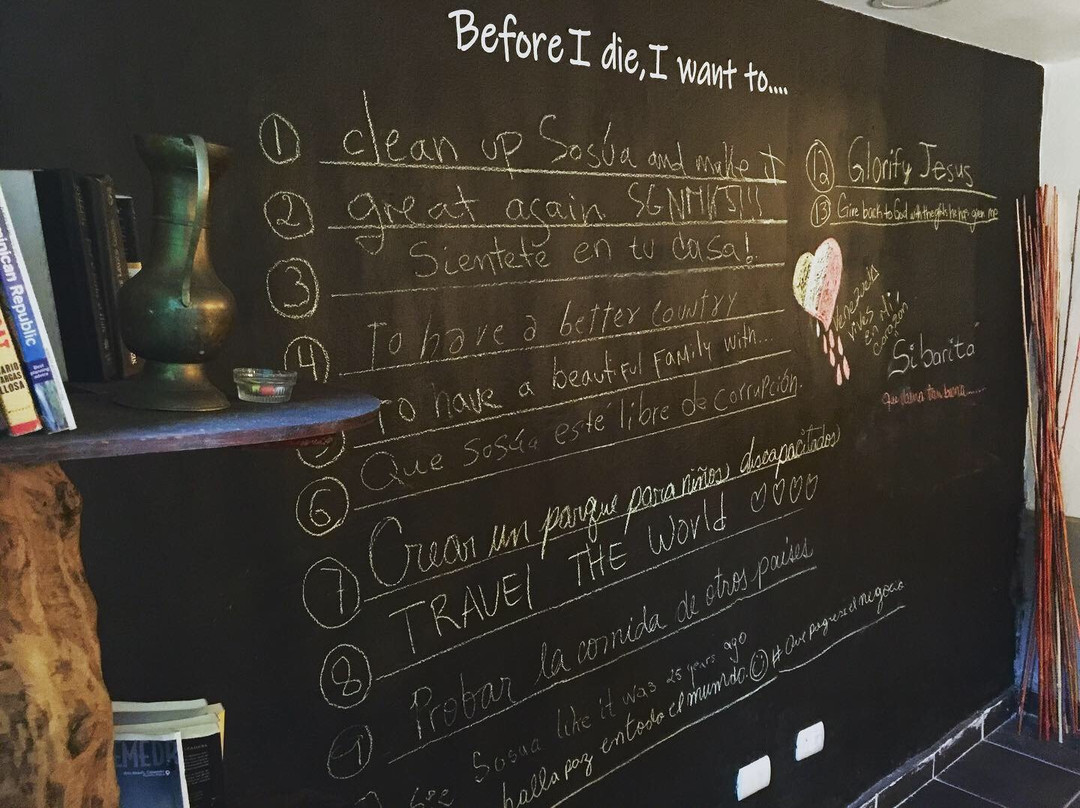 Before I die, I want to....
1 clean up Sosúa and make it
2 great again
3 Sientete en tu casa!
4 To have a better country
To have a beautiful Family with...
Que Sosúa esté libre de corrupción.
6
7 Crear un parque para niños discapacitados
8 TRAVEL THE WORLD
9 Probar la comida de otros países
Sosua like it was 25 years ago
halla paz en todo el mundo. # Que progrese el negocio
12 Glorify Jesus
13 Give back to God with the gifts he has given me
Venezuela
vives
en mi
corazon
Sibarita
que
Dominican Republic